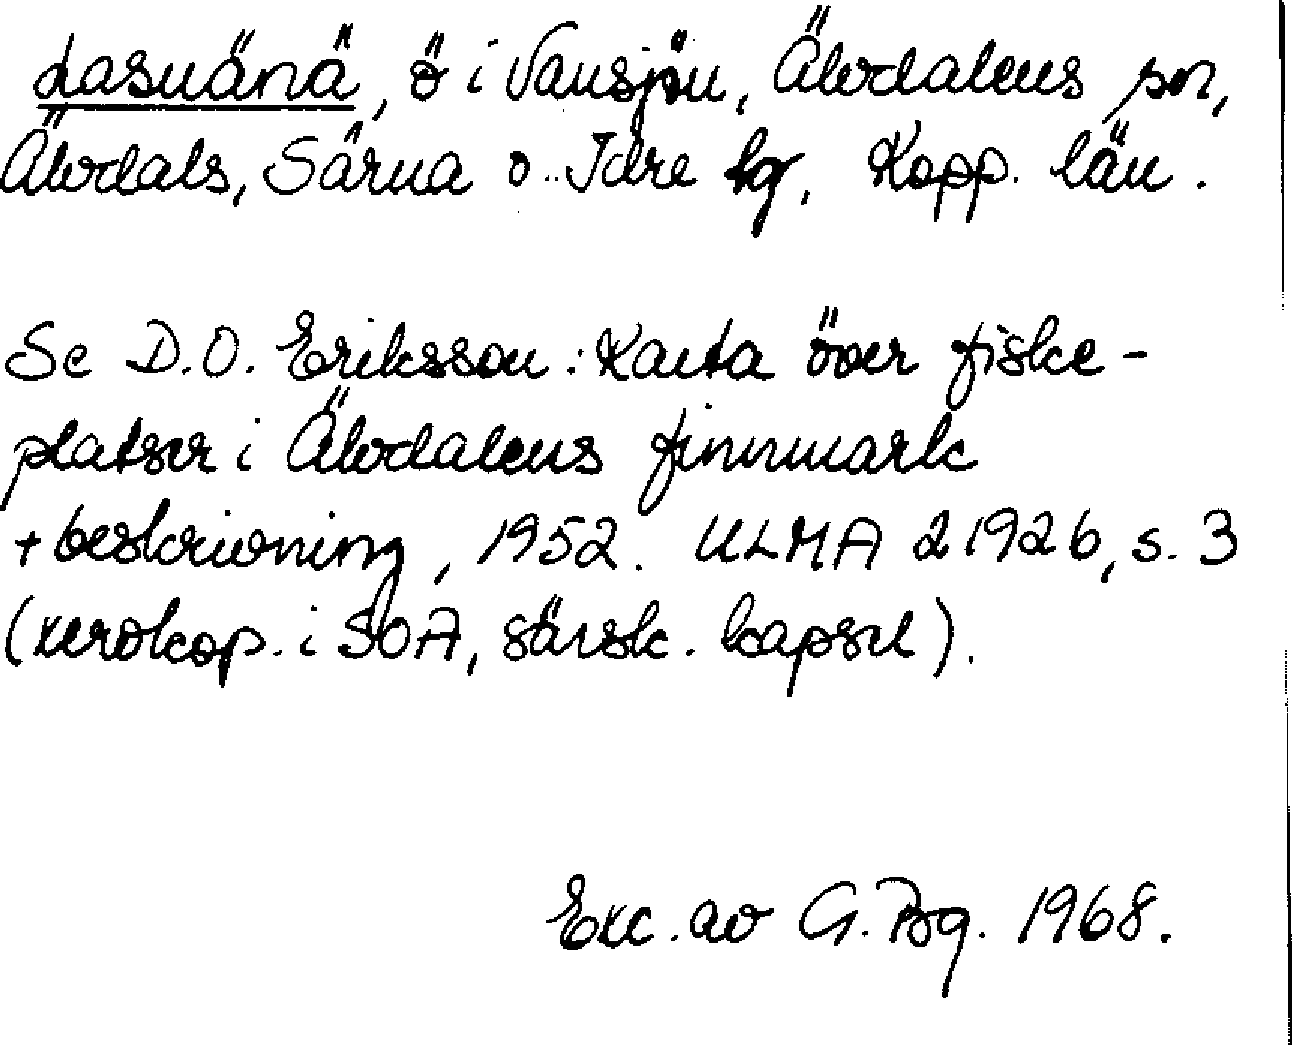 Lasuänä, ö i Vansjön, Älvdalens sn,
Älvdals, Särna o. Idre tg, Kopp. län.
Se D.O. Eriksson: Karta över fiske-
platser i Älvdalens finnmark
+ beskrivning, 1952. ULMA 21926, s. 3
(xerokop. i SOA, särsk. kapsel).
Exc. av G. Bg. 1968.